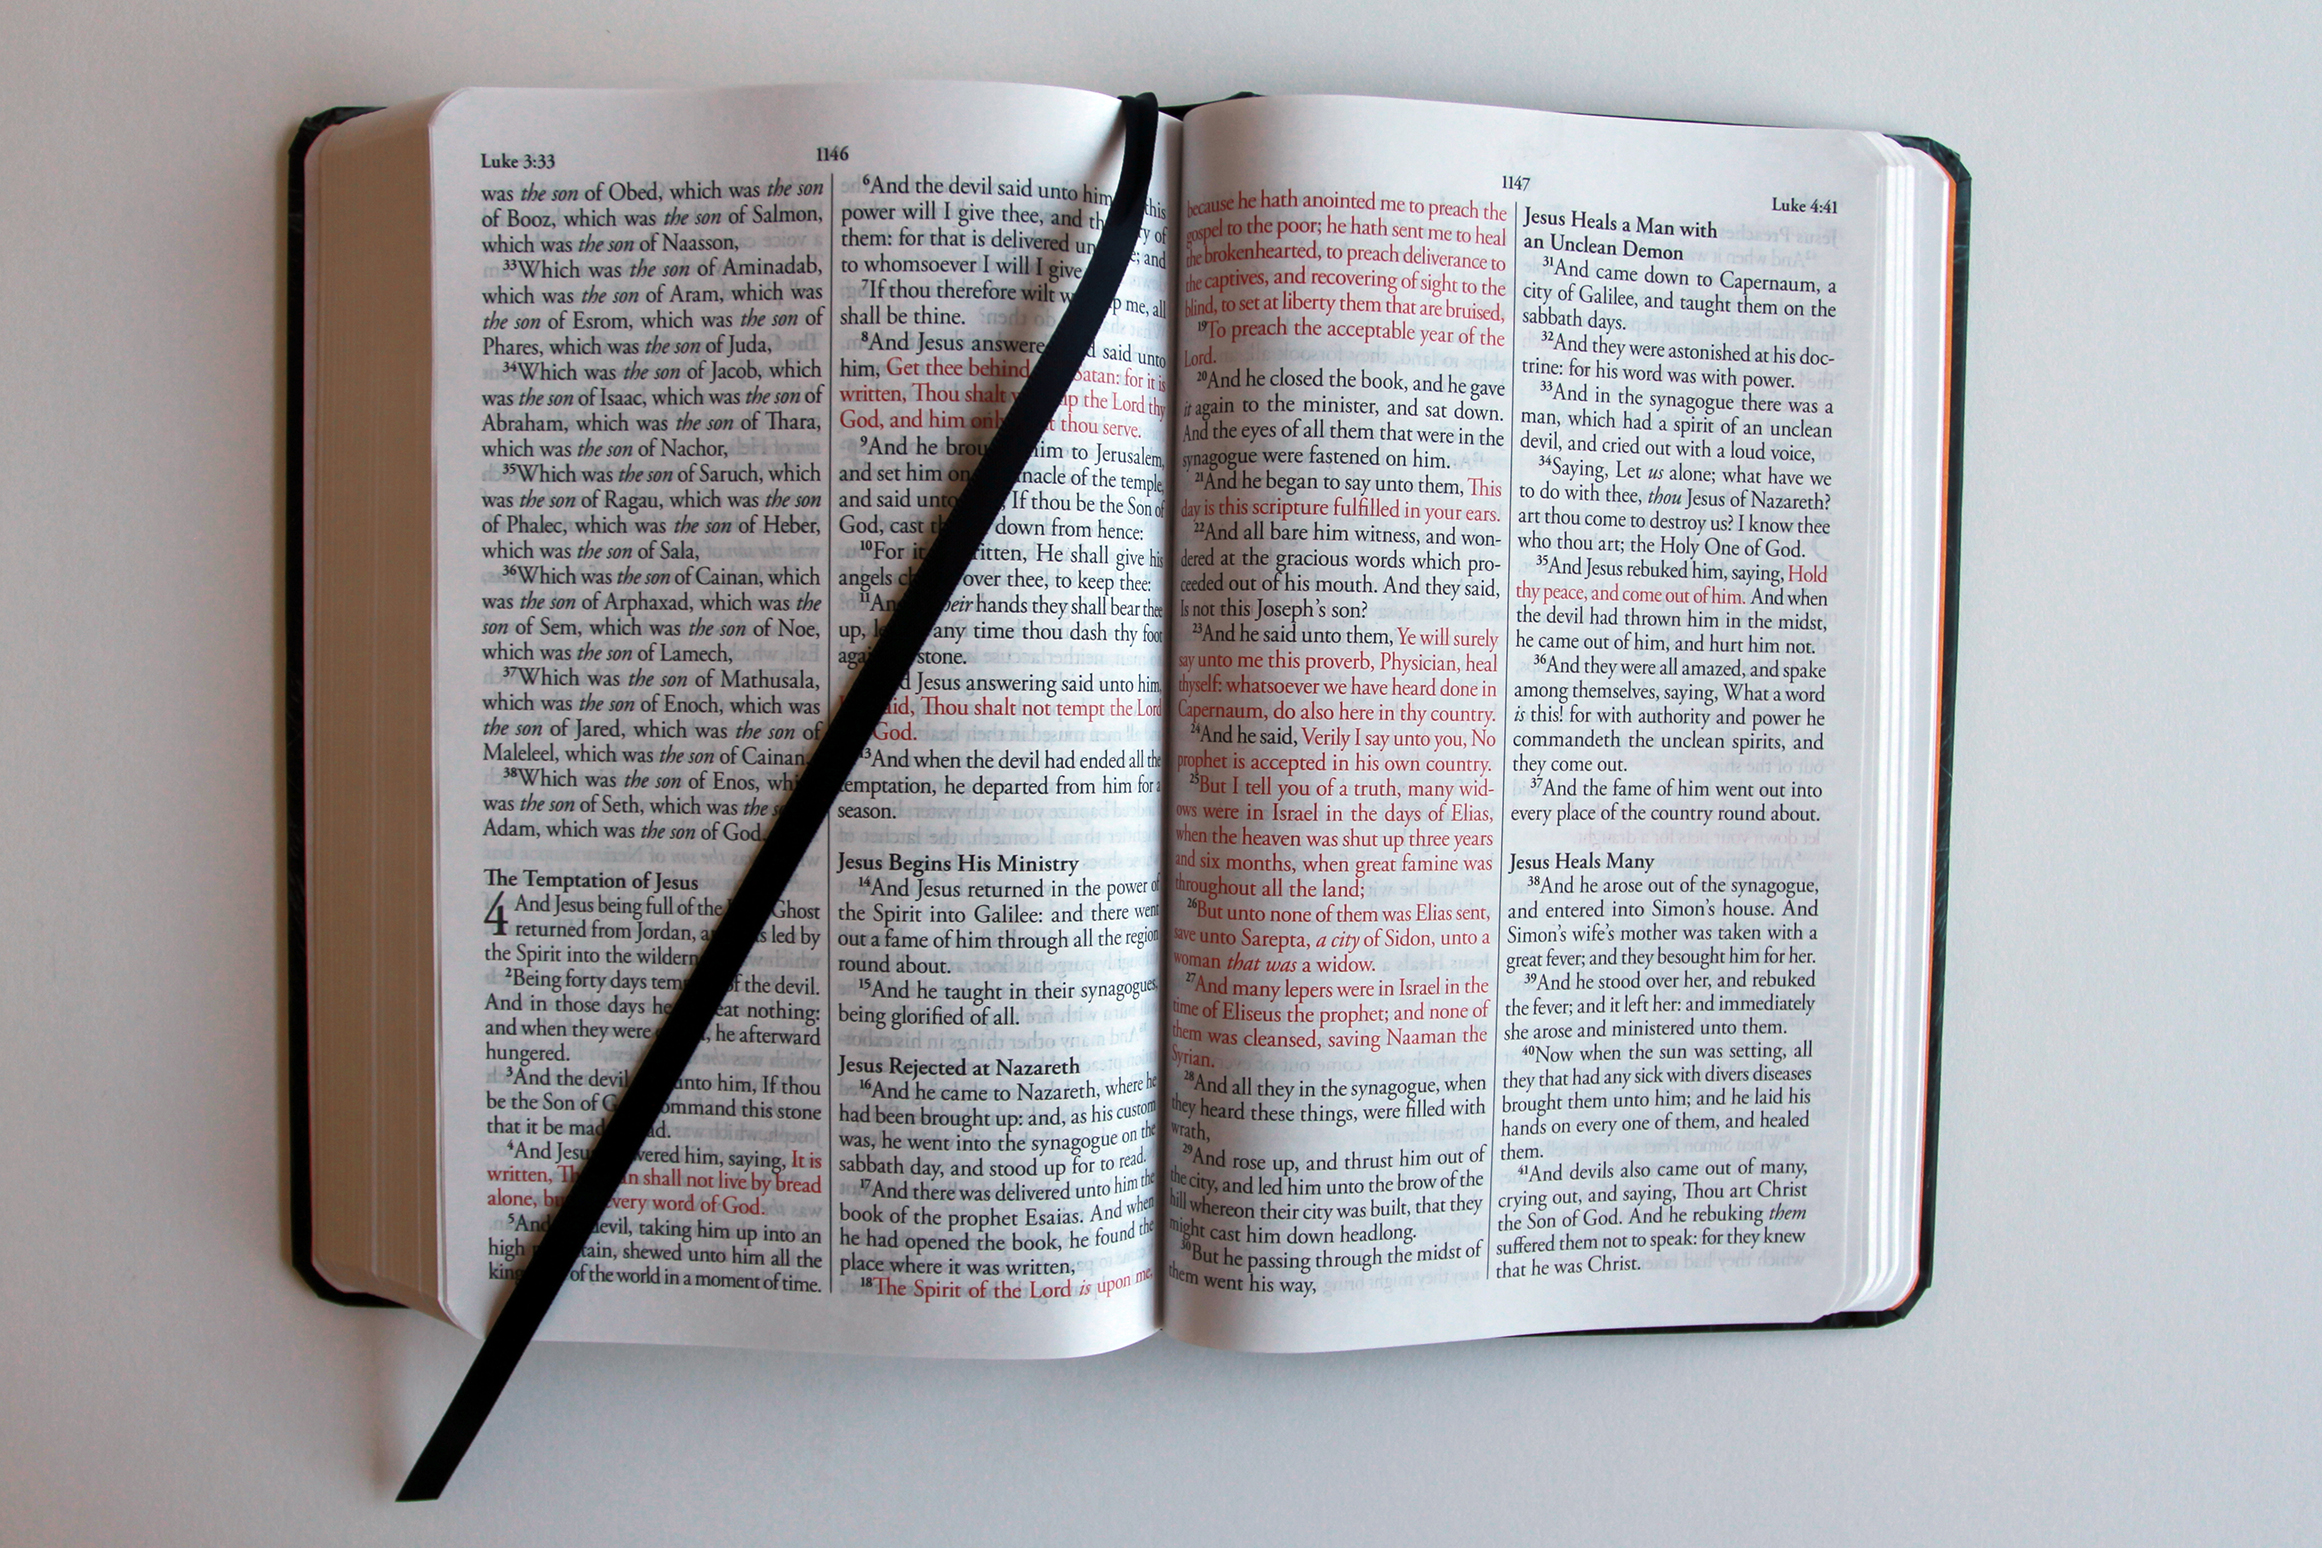 Luke 3:33
1146
was the son of Obed, which was the son
of Booz, which was the son of Salmon,
which was the son of Naasson,
33Which was the son of Aminadab,
which was the son of Aram, which was
the son of Esrom, which was the son of
Phares, which was the son of Juda,
34Which was the son of Jacob, which
was the son of Isaac, which was the son of
Abraham, which was the son of Thara,
which was the son of Nachor,
35Which was the son of Saruch, which
was the son of Ragau, which was the son
of Phalec, which was the son of Heber,
which was the son of Sala,
36Which was the son of Cainan, which
was the son of Arphaxad, which was the
son of Sem, which was the son of Noe,
which was the son of Lamech,
37Which was the son of Mathusala,
which was the son of Enoch, which was
the son of Jared, which was the son of
Maleleel, which was the son of Cainan,
38Which was the son of Enos,
was the son of Seth, which was the
Adam, which was the son of God.
The Temptation of Jesus
4 And Jesus being full of the Ghost
returned from Jordan, led by
the Spirit into the
2Being forty days of the devil.
And in those days he eat nothing:
and when they were he afterward
hungered.
3And the devil unto him, If thou
be the Son of command this stone
that it be
4And him, saying, It is
written, shall not live by bread
alone, every word of God.
5And devil, taking him up into an
high shewed unto him all the
of the world in a moment of time.
6And the devil said unto him, this
power will I give thee, and of
them: for that is delivered and
to whomsoever I will I give
7If thou therefore wilt me, all
shall be thine.
8And Jesus said unto
him, Get thee behind Satan: for it is
written, Thou shalt the Lord thy
God, and him only thou serve.
9And he him to Jerusalem,
and set him on of the temple,
and said unto If thou be the Son of
God, cast down from hence:
10For it He shall give his
angels over thee, to keep thee:
11 hands they shall bear thee
up, any time thou dash thy foot
stone.
Jesus answering said unto him,
Thou shalt not tempt the Lord
God.
13And when the devil had ended all the
temptation, he departed from him for a
season.
Jesus Begins His Ministry
14And Jesus returned in the power of
the Spirit into Galilee: and there went
out a fame of him through all the region
round about.
15And he taught in their synagogues,
being glorified of all.
Jesus Rejected at Nazareth
16And he came to Nazareth, where he
had been brought up: and, as his custom
was, he went into the synagogue on the
sabbath day, and stood up for to read.
17And there was delivered unto him the
book of the prophet Esaias. And when
he had opened the book, he found the
place where it was written,
18The Spirit of the Lord is upon me,
1147
Luke 4:41
because he hath anointed me to preach the
gospel to the poor; he hath sent me to heal
the brokenhearted, to preach deliverance to
the captives, and recovering of sight to the
blind, to set at liberty them that are bruised,
19To preach the acceptable year of the
Lord.
20And he closed the book, and he gave
it again to the minister, and sat down.
And the eyes of all them that were in the
synagogue were fastened on him.
21And he began to say unto them, This
day is this scripture fulfilled in your ears.
22And all bare him witness, and won-
dered at the gracious words which pro-
ceeded out of his mouth. And they said,
Is not this Joseph's son?
23And he said unto them, Ye will surely
say unto me this proverb, Physician, heal
thyself: whatsoever we have heard done in
Capernaum, do also here in thy country.
24And he said, Verily I say unto you, No
prophet is accepted in his own country.
25But I tell you of a truth, many wid-
ows were in Israel in the days of Elias,
when the heaven was shut up three years
and six months, when great famine was
throughout all the land;
26But unto none of them was Elias sent,
save unto Sarepta, a city of Sidon, unto a
woman that was a widow.
27And many lepers were in Israel in the
time of Eliseus the prophet; and none of
them was cleansed, saving Naaman the
Syrian.
28And all they in the synagogue, when
they heard these things, were filled with
wrath,
29And rose up, and thrust him out of
the city, and led him unto the brow of the
hill whereon their city was built, that they
might cast him down headlong.
30But he passing through the midst of
them went his way,
Jesus Heals a Man with
an Unclean Demon
31And came down to Capernaum, a
city of Galilee, and taught them on the
sabbath days.
32And they were astonished at his doc-
trine: for his word was with power.
33And in the synagogue there was a
man, which had a spirit of an unclean
devil, and cried out with a loud voice,
34Saying, Let us alone; what have we
to do with thee, thou Jesus of Nazareth?
art thou come to destroy us? I know thee
who thou art; the Holy One of God.
35And Jesus rebuked him, saying, Hold
thy peace, and come out of him. And when
the devil had thrown him in the midst,
he came out of him, and hurt him not.
36And they were all amazed, and spake
among themselves, saying, What a word
is this! for with authority and power he
commandeth the unclean spirits, and
they come out.
37And the fame of him went out into
every place of the country round about.
Jesus Heals Many
38And he arose out of the synagogue,
and entered into Simon's house. And
Simon's wife's mother was taken with a
great fever; and they besought him for her.
39And he stood over her, and rebuked
the fever; and it left her: and immediately
she arose and ministered unto them.
40Now when the sun was setting, all
they that had any sick with divers diseases
brought them unto him; and he laid his
hands on every one of them, and healed
them.
41And devils also came out of many,
crying out, and saying, Thou art Christ
the Son of God. And he rebuking them
suffered them not to speak: for they knew
that he was Christ.